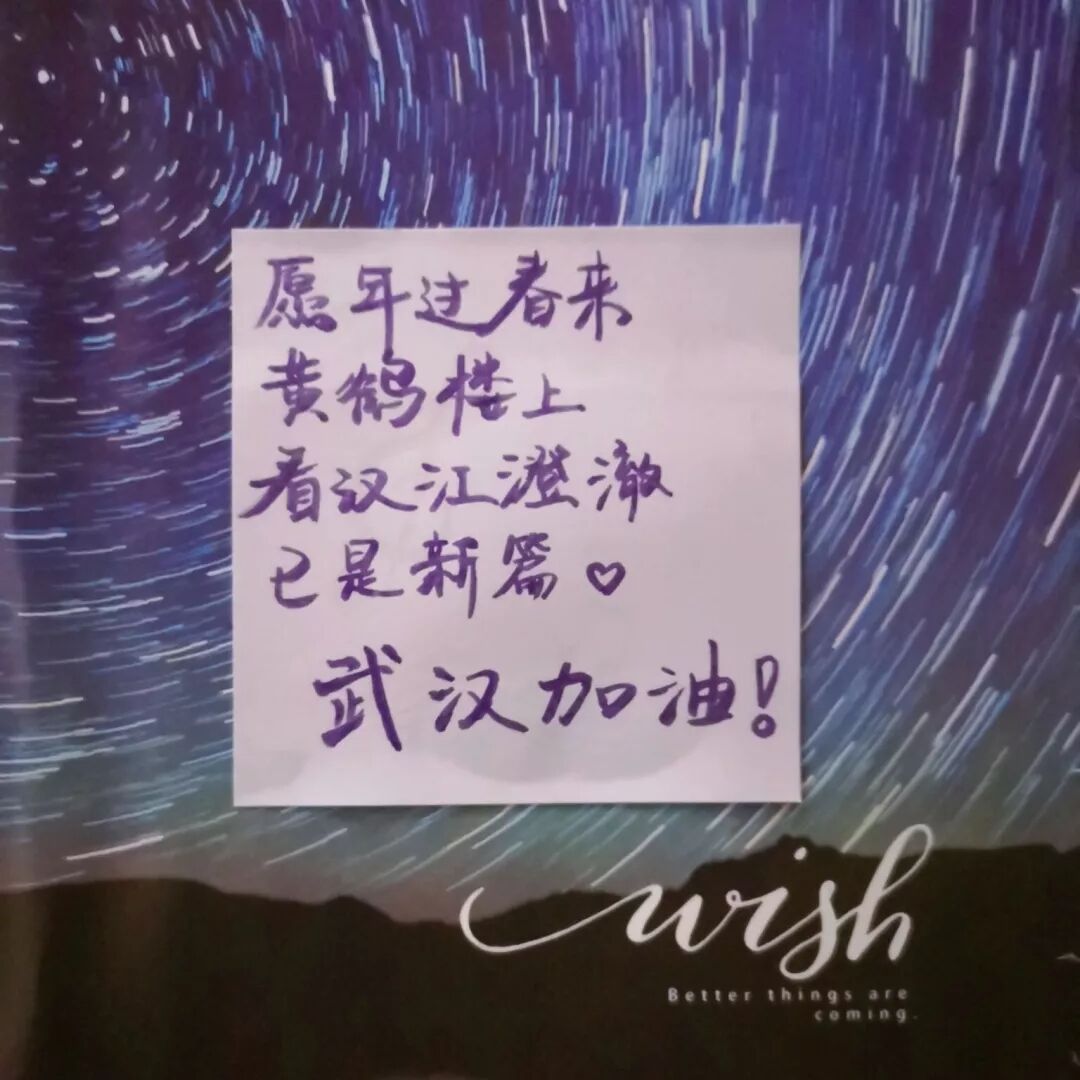 愿年过春来
黄鹤楼上
看汉江澄澈
已是新篇♡
武汉加油！
wish
Better things are
coming.